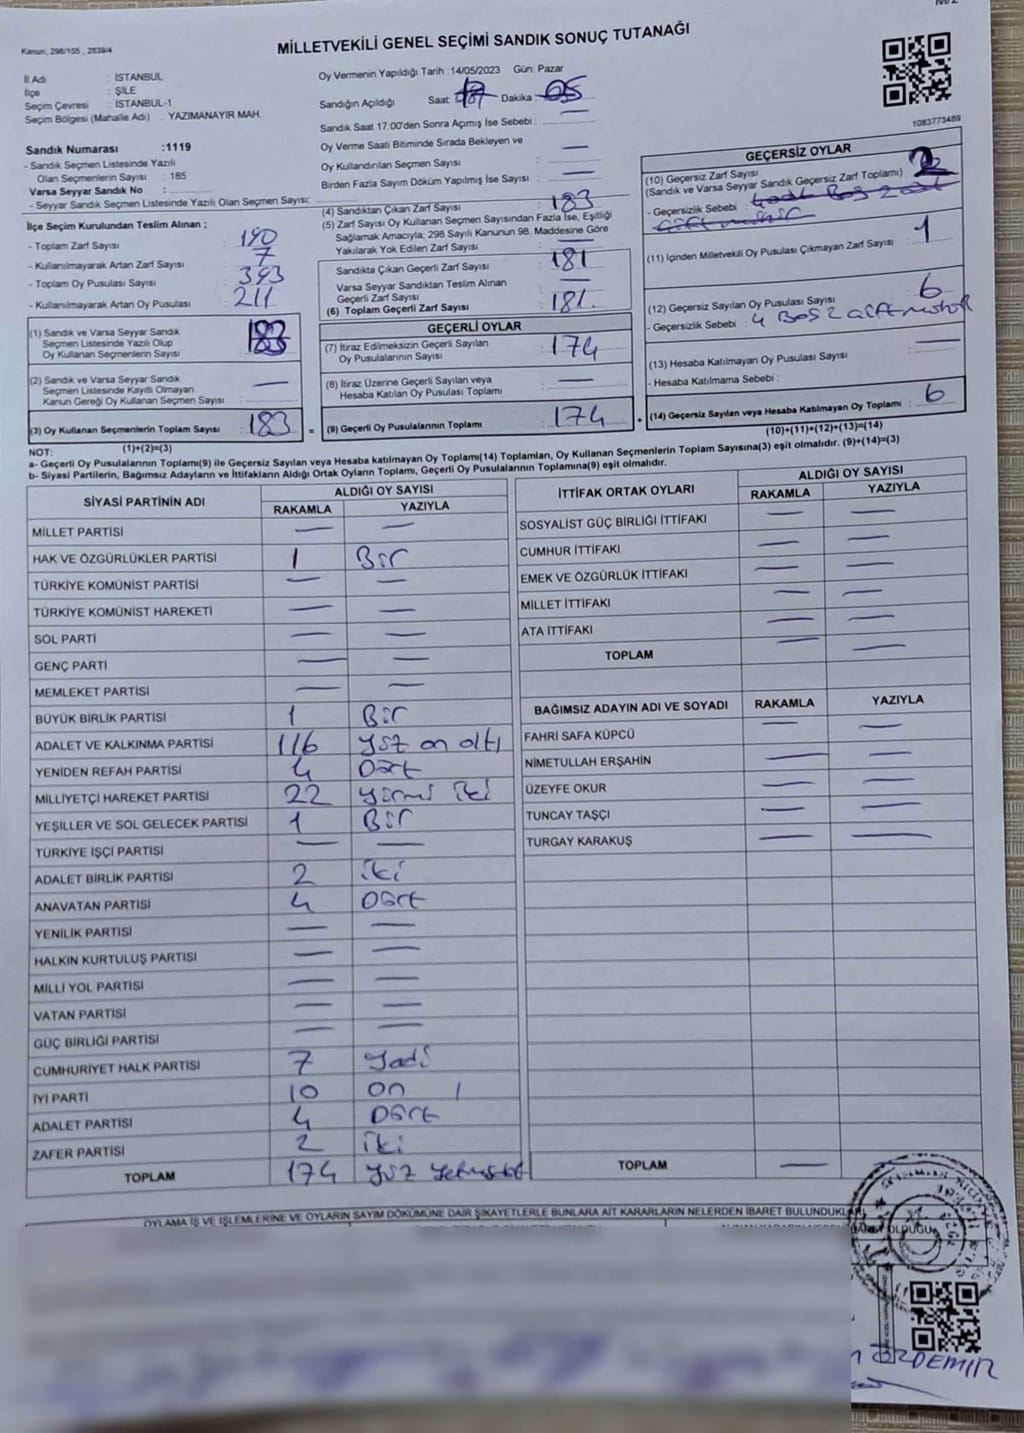 MİLLETVEKİLİ GENEL SEÇİMİ SANDIK SONUÇ TUTANAĞI
Kanun: 298/105 , 2839/4
İl Adı : İSTANBUL
İlçe : ŞİLE
Seçim Çevresi : İSTANBUL-1
Seçim Bölgesi (Mahalle Adı) : YAZIMANAYIR MAH.
Sandık Numarası :1119
- Sandık Seçmen Listesinde Yazılı
Olan Seçmenlerin Sayısı : 185
Varsa Seyyar Sandık No :
- Seyyar Sandık Seçmen Listesinde Yazılı Olan Seçmen Sayısı:
İlçe Seçim Kurulundan Teslim Alınan ;
- Toplam Zarf Sayısı 190
- Kullanılmayarak Artan Zarf Sayısı 7
- Toplam Oy Pusulası Sayısı 393
- Kullanılmayarak Artan Oy Pusulası 211
(1) Sandık ve Varsa Seyyar Sandık
Seçmen Listesinde Yazılı Olup
Oy Kullanan Seçmenlerin Sayısı 183
(2) Sandık ve Varsa Seyyar Sandık —
Seçmen Listesinde Kayıtlı Olmayan
Kanun Gereği Oy Kullanan Seçmen Sayısı :
(3) Oy Kullanan Seçmenlerin Toplam Sayısı : 183 =
(1)+(2)=(3)
Oy Vermenin Yapıldığı Tarih :14/05/2023 Gün: Pazar
Sandığın Açıldığı Saat: Dakika : 05
Sandık Saat 17:00'den Sonra Açımış İse Sebebi : —
Oy Verme Saati Bitiminde Sırada Bekleyen ve
Oy Kullandırılan Seçmen Sayısı : —
Birden Fazla Sayım Döküm Yapılmış İse Sayısı : —
(4) Sandıktan Çıkan Zarf Sayısı : 183
(5) Zarf Sayısı Oy Kullanan Seçmen Sayısından Fazla İse, Eşitliği
Sağlamak Amacıyla; 298 Sayılı Kanunun 98. Maddesine Göre
Yakılarak Yok Edilen Zarf Sayısı —
Sandıkta Çıkan Geçerli Zarf Sayısı : 181
Varsa Seyyar Sandıktan Teslim Alınan
Geçerli Zarf Sayısı : —
(6) Toplam Geçerli Zarf Sayısı : 181.
GEÇERLİ OYLAR
(7) İtiraz Edilmeksizin Geçerli Sayılan
Oy Pusulalarının Sayısı : 174
(8) İtiraz Üzerine Geçerli Sayılan veya
Hesaba Katılan Oy Pusulası Toplamı : —
(9) Geçerli Oy Pusulalarının Toplamı : 174 +
1083773489
GEÇERSİZ OYLAR
(10) Geçersiz Zarf Sayısı
(Sandık ve Varsa Seyyar Sandık Geçersiz Zarf Toplamı)
- Geçersizlik Sebebi :
(11) İçinden Milletvekili Oy Pusulası Çıkmayan Zarf Sayısı : 1
(12) Geçersiz Sayılan Oy Pusulası Sayısı : 6
- Geçersizlik Sebebi : 4 Boş 2
(13) Hesaba Katılmayan Oy Pusulası Sayısı : —
- Hesaba Katılmama Sebebi :
(14) Geçersiz Sayılan veya Hesaba Katılmayan Oy Toplamı : 6
(10)+(11)+(12)+(13)=(14)
NOT:
a- Geçerli Oy Pusulalarının Toplamı(9) ile Geçersiz Sayılan veya Hesaba katılmayan Oy Toplamı(14) Toplamları, Oy Kullanan Seçmenlerin Toplam Sayısına(3) eşit olmalıdır. (9)+(14)=(3)
b- Siyasi Partilerin, Bağımsız Adayların ve İttifakların Aldığı Ortak Oyların Toplamı, Geçerli Oy Pusulalarının Toplamına(9) eşit olmalıdır.
SİYASİ PARTİNİN ADI ALDIĞI OY SAYISI
RAKAMLA YAZIYLA
MİLLET PARTİSİ — —
HAK VE ÖZGÜRLÜKLER PARTİSİ 1 Bir
TÜRKİYE KOMÜNİST PARTİSİ — —
TÜRKİYE KOMÜNİST HAREKETİ — —
SOL PARTİ — —
GENÇ PARTİ — —
MEMLEKET PARTİSİ — —
BÜYÜK BİRLİK PARTİSİ 1 Bir
ADALET VE KALKINMA PARTİSİ 116 yüz on altı
YENİDEN REFAH PARTİSİ 4 Dört
MİLLİYETÇİ HAREKET PARTİSİ 22 yirmi iki
YEŞİLLER VE SOL GELECEK PARTİSİ 1 Bir
TÜRKİYE İŞÇİ PARTİSİ — —
ADALET BİRLİK PARTİSİ 2 iki
ANAVATAN PARTİSİ 4 Dört
YENİLİK PARTİSİ — —
HALKIN KURTULUŞ PARTİSİ — —
MİLLİ YOL PARTİSİ — —
VATAN PARTİSİ — —
GÜÇ BİRLİĞİ PARTİSİ — —
CUMHURİYET HALK PARTİSİ 7 Yedi
İYİ PARTİ 10 On
ADALET PARTİSİ 4 Dört
ZAFER PARTİSİ 2 iki
TOPLAM 174 yüz yetmişdört
İTTİFAK ORTAK OYLARI ALDIĞI OY SAYISI
RAKAMLA YAZIYLA
SOSYALİST GÜÇ BİRLİĞİ İTTİFAKI — —
CUMHUR İTTİFAKI — —
EMEK VE ÖZGÜRLÜK İTTİFAKI — —
MİLLET İTTİFAKI — —
ATA İTTİFAKI — —
TOPLAM — —
BAĞIMSIZ ADAYIN ADI VE SOYADI RAKAMLA YAZIYLA
FAHRİ SAFA KÜPCÜ — —
NİMETULLAH ERŞAHİN — —
ÜZEYFE OKUR — —
TUNCAY TAŞÇI — —
TURGAY KARAKUŞ — —
TOPLAM —
OYLAMA İŞ VE İŞLEMLERİNE VE OYLARIN SAYIM DÖKÜMÜNE DAİR ŞİKAYETLERLE BUNLARA AİT KARARLARIN NELERDEN İBARET BULUNDUKLARI
OLDUĞU
ERDEMİR